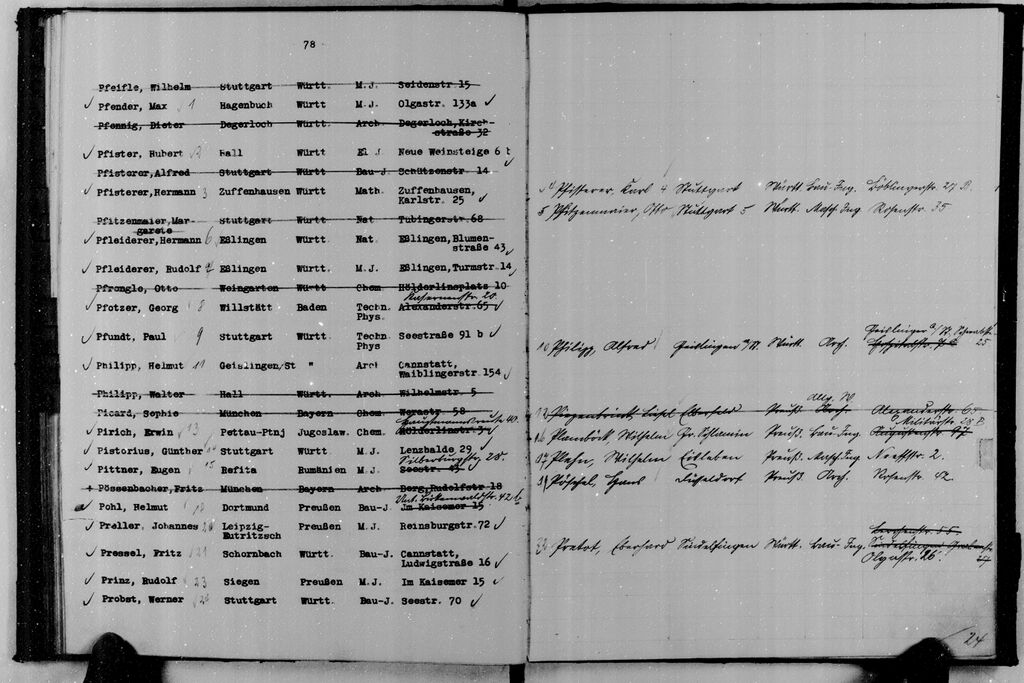 78
Pfeifle, Wilhelm Stuttgart Württ. M.J. Seidenstr 15
Pfender, Max 1 Hagenbuch Württ M.J. Olgastr. 133a
Pfennig, Dieter Degerloch Württ. Arch Degerloch,Kirch-
straße 32
Pfister, Hubert 2 Hall Württ El J Neue Weinsteige 6 b
Pfisterer,Alfred Stuttgart Württ Bau-J Schützenstr 14
Pfisterer,Hermann 3 Zuffenhausen Württ Math. Zuffenhausen,
Karlstr. 25
Pfitzenmaier,Mar- Stuttgart Württ Nat Tubingerstr 68
garete
Pfleiderer,Hermann 6 Eßlingen Württ. Nat. Eßlingen,Blumen-
straße 43
Pfleiderer, Rudolf Eßlingen Württ. M.J. Eßlingen,Turmstr 14
Pfrongle, Otto Weingarten Württ Chem Hölderlinsplatz 10
Pfotzer, Georg 8 Willstätt Baden Techn. Alexanderstr.65
Phys.
Pfundt, Paul 9 Stuttgart Württ. Techn Seestraße 91 b
Phys
Philipp, Helmut 11 Geislingen/St " Arch Cannstatt,
Waiblingerstr 154
Philipp, Walter Hall Württ. Arch Wilhelmstr 5
Picard, Sophie München Bayern Chem. Werastr 58
Pirich, Erwin 13 Pettau-Ptnj Jugoslaw. Chem. Hölderlinstr
Pistorius, Günther Stuttgart Württ M.J. Lenzhalde 29
Silberburgstr 28
Pittner, Eugen 15 Refita Rumänien M.J. Seestr.
+ Pössenbacher,Fritz München Bayern Arch Berg,Rudolfstr 18
Unt. Birkenwaldstr. 42 b
Pohl, Helmut 18 Dortmund Preußen Bau-J Im Kaisemer 15
Preller, Johannes 20 Leipzig- Preußen M.J. Reinsburgstr.72
Eutritzsch
Pressel, Fritz 21 Schornbach Württ. Bau-J. Cannstatt,
Ludwigstraße 16
Prinz, Rudolf 23 Siegen Preußen M.J. Im Kaisemer 15
Probst, Werner Stuttgart Württ. Bau-J. Seestr. 70
Pfisterer, Karl 4 Stuttgart Württ Bau-Ing. Böblingerstr. 27 B.
5 Pfitzenmaier, Otto, Stuttgart 5 Württ. Masch Ing Rosenstr. 35
10 Philipp, Alfred Geislingen a/St. Württ. Arch.
25
Allg. W
12 Elberfeld Preuß. Arch. Alexanderstr 65
Militärstr 28 B
Plambeck, Wilhelm Preuß. Bau-Ing. Augustenstr. 47
Plehn, Wilhelm Eisleben Preuß. Masch Ing.
Pöschel, Hans Düsseldorf Preuß. Arch. Rosenstr. 42
Eberhard Sindelfingen Württ. Bau-Ing.
Olgastr. 26.
24